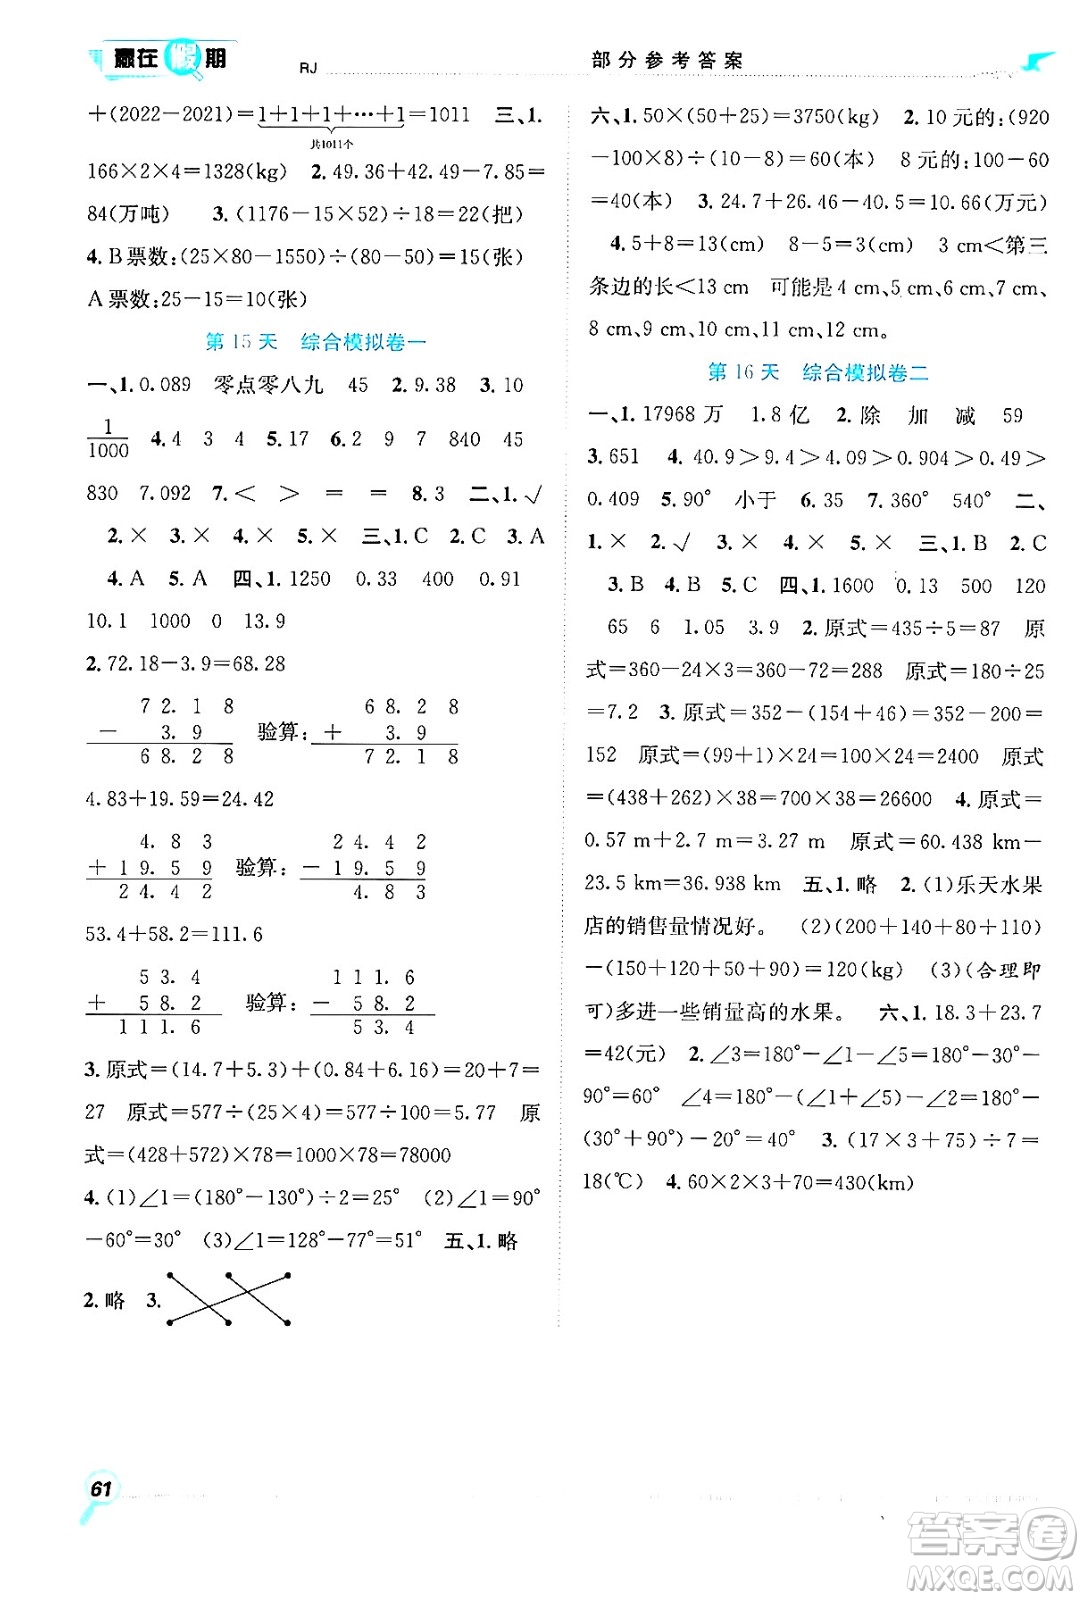 赢在假期
RJ
部分参考答案
＋(2022－2021)＝1＋1＋1＋…＋1＝1011　三、1.
共1011个
166×2×4＝1328(kg)　2. 49.36＋42.49－7.85＝
84(万吨)　3. (1176－15×52)÷18＝22(把)
4. B票数：(25×80－1550)÷(80－50)＝15(张)
A票数：25－15＝10(张)
第15天　综合模拟卷一
一、1. 0.089　零点零八九　45　2. 9.38　3. 10
1/1000　4. 4　3　4　5. 17　6. 2　9　7　840　45
830　7.092　7. ＜　＞　＝　＝　8. 3　二、1. √
2. ×　3. ×　4. ×　5. ×　三、1. C　2. C　3. A
4. A　5. A　四、1. 1250　0.33　400　0.91
10.1　1000　0　13.9
2. 72.18－3.9＝68.28
7 2. 1 8　6 8. 2 8
－　3. 9　验算：＋　3. 9
6 8. 2 8　7 2. 1 8
4.83＋19.59＝24.42
4. 8 3　2 4. 4 2
＋ 1 9. 5 9　验算：－ 1 9. 5 9
2 4. 4 2　4. 8 3
53.4＋58.2＝111.6
5 3. 4　1 1 1. 6
＋　5 8. 2　验算：－　5 8. 2
1 1 1. 6　5 3. 4
3. 原式＝(14.7＋5.3)＋(0.84＋6.16)＝20＋7＝
27　原式＝577÷(25×4)＝577÷100＝5.77　原
式＝(428＋572)×78＝1000×78＝78000
4. (1)∠1＝(180°－130°)÷2＝25°　(2)∠1＝90°
－60°＝30°　(3)∠1＝128°－77°＝51°　五、1. 略
2. 略　3.
六、1. 50×(50＋25)＝3750(kg)　2. 10元的：(920
－100×8)÷(10－8)＝60(本)　8元的：100－60
＝40(本)　3. 24.7＋26.46－40.5＝10.66(万元)
4. 5＋8＝13(cm)　8－5＝3(cm)　3 cm＜第三
条边的长＜13 cm　可能是4 cm、5 cm、7 cm、
8 cm、9 cm、10 cm、11 cm、12 cm。
第16天　综合模拟卷二
一、1. 17968万　1.8亿　2. 除　加　减　59
3. 651　4. 40.9＞9.4＞4.09＞0.904＞0.49＞
0.409　5. 90°　小于　6. 35　7. 360°　540°　二、
1. ×　2. √　3. ×　4. ×　5. ×　三、1. B　2. C
3. B　4. B　5. C　四、1. 1600　0.13　500　120
65　6　1.05　3.9　2. 原式＝435÷5＝87　原
式＝360－24×3＝360－72＝288　原式＝180÷25
＝7.2　3. 原式＝352－(154＋46)＝352－200＝
152　原式＝(99＋1)×24＝100×24＝2400　原式
＝(438＋262)×38＝700×38＝26600　4. 原式＝
0.57 m＋2.7 m＝3.27 m　原式＝60.438 km－
23.5 km＝36.938 km　五、1. 略　2. (1)乐天水果
店的销售量情况好。　(2)(200＋140＋80＋110)
－(150＋120＋50＋90)＝120(kg)　(3)(合理即
可)多进一些销量高的水果。　六、1. 18.3＋23.7
＝42(元)　2. ∠3＝180°－∠1－∠2＝180°－50°－
90°＝40°　∠4＝180°－(∠1＋∠5)－∠2＝180°－
(30°＋90°)－20°＝40°　3. (17×3＋75)÷7＝
18(℃)　4. 60×2×3＋70＝430(km)
61
答案卷
MXQE.COM